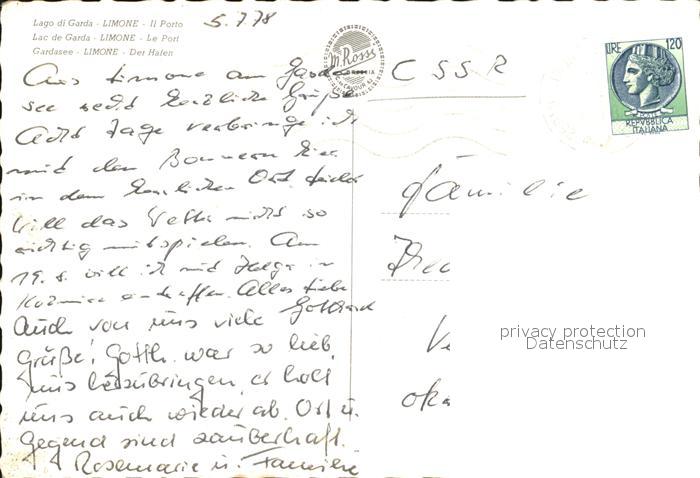 Lago di Garda - LIMONE - Il Porto
Lac de Garda - LIMONE - Le Port
Gardasee - LIMONE - Der Hafen
5.7.78
M. Rossi
Aus Limone am Garda-
see recht herzliche Grüße
Acht Tage verbringe ich
mit den Bonnern hier
in dem herrlichen Ort. Leider
will das Wetter nicht so
richtig mitspielen. Am
19. 8. will ich mit Helga in
eintreffen. Alles Liebe
Gotthard
Auch von uns viele
Grüße! Gotth. war so lieb
uns herzubringen, er holt
uns auch wieder ab. Ort u.
Gegend sind zauberhaft.
Rosemarie u. Familie
CSSR
Familie
LIRE 120
REPVBBLICA
ITALIANA
privacy protection
Datenschutz